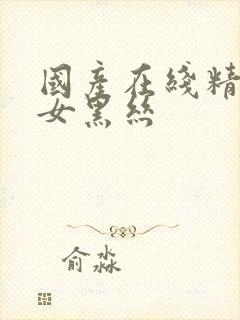 國產在綫精
女黑絲
俞淼